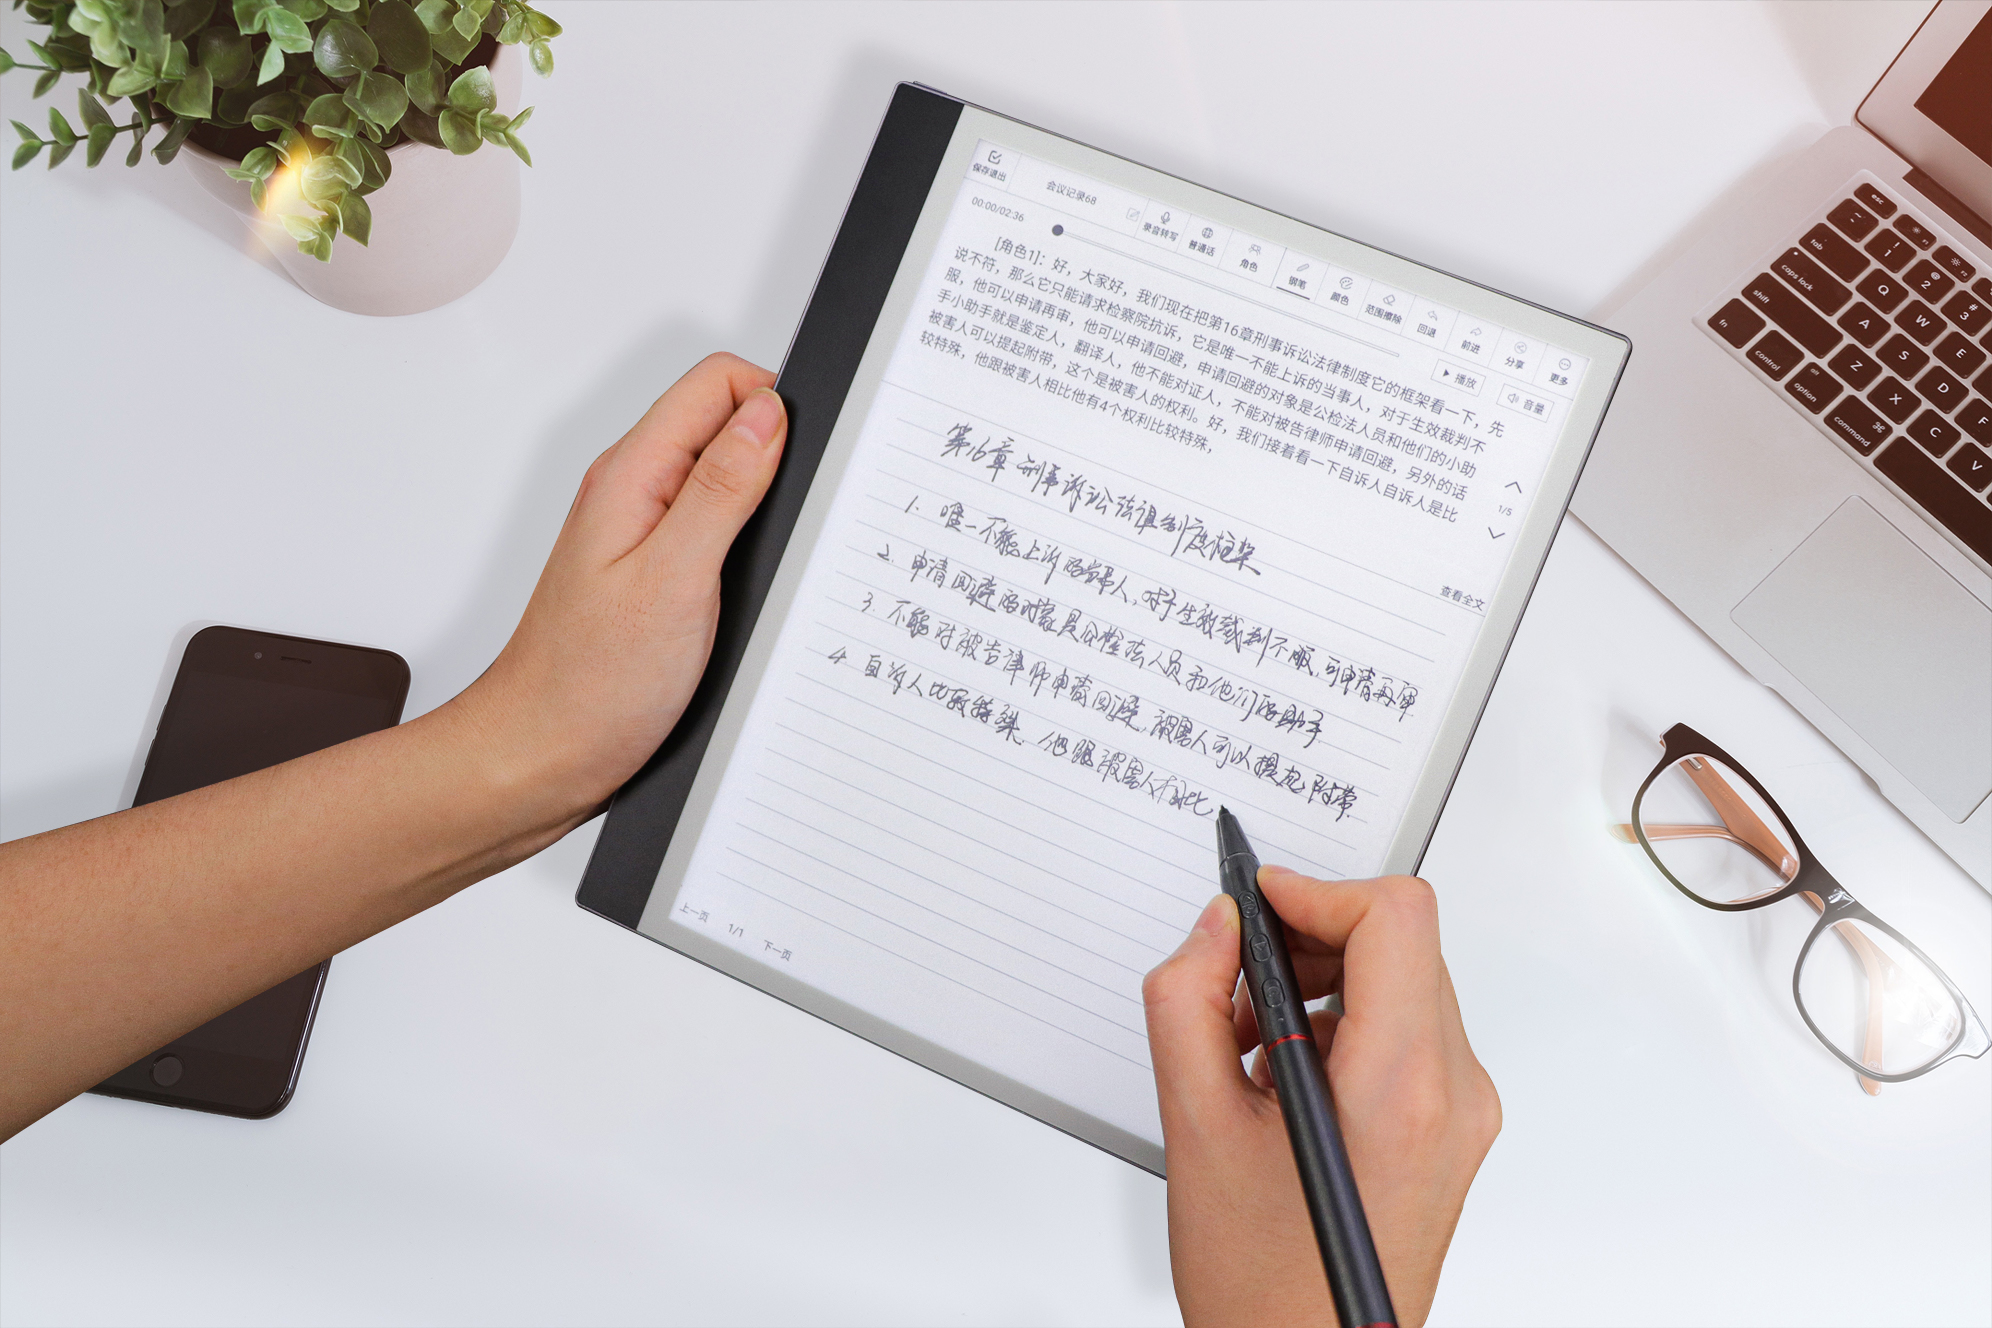 保存退出
会议记录68
录音转写
普通话
角色
钢笔
颜色
范围擦除
回退
前进
分享
更多
00:00/02:36
播放
音量
[角色1]：好，大家好，我们现在把第16章刑事诉讼法律制度它的框架看一下，先
说不符，那么它只能请求检察院抗诉，它是唯一不能上诉的当事人，对于生效裁判不
服，他可以申请再审，他可以申请回避，申请回避的对象是公检法人员和他们的小助
手小助手就是鉴定人，翻译人，他不能对证人，不能对被告律师申请回避，另外的话
被害人可以提起附带，这个是被害人的权利。好，我们接着看一下自诉人自诉人是比
较特殊，他跟被害人相比他有4个权利比较特殊，
1/5
查看全文
第16章 刑事诉讼法律制度框架
1. 唯一不能上诉的当事人，对于生效裁判不服，可申请再审
2. 申请回避的对象是公检法人员和他们的助手
3. 不能对被告律师申请回避，被害人可以提起附带.
4. 自诉人比较特殊. 他跟被害人相比
上一页
1/1
下一页
esc
tab
caps lock
shift
fn
control
option
command
⌘
~
!
1
@
2
#
3
Q
W
E
A
S
D
F
Z
X
C
V